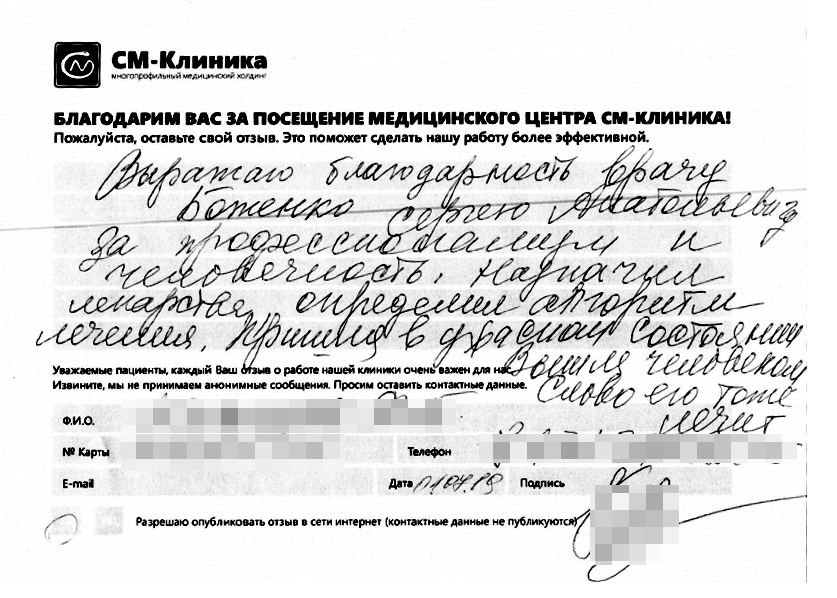 СМ-Клиника
многопрофильный медицинский холдинг
БЛАГОДАРИМ ВАС ЗА ПОСЕЩЕНИЕ МЕДИЦИНСКОГО ЦЕНТРА СМ-КЛИНИКА!
Пожалуйста, оставьте свой отзыв. Это поможет сделать нашу работу более эффективной.
Выражаю благодарность врачу
Боженко Сергею Анатольевичу
За профессионализм и
человечность. Назначил
лекарства, определил алгоритм
лечения. Пришла в ужасном состоянии
Вышла человеком
Слово его тоже
лечит
Уважаемые пациенты, каждый Ваш отзыв о работе нашей клиники очень важен для нас.
Извините, мы не принимаем анонимные сообщения. Просим оставить контактные данные.
Ф.И.О.
№ Карты Телефон
E-mail Дата 01.07.19 Подпись
Разрешаю опубликовать отзыв в сети интернет (контактные данные не публикуются)